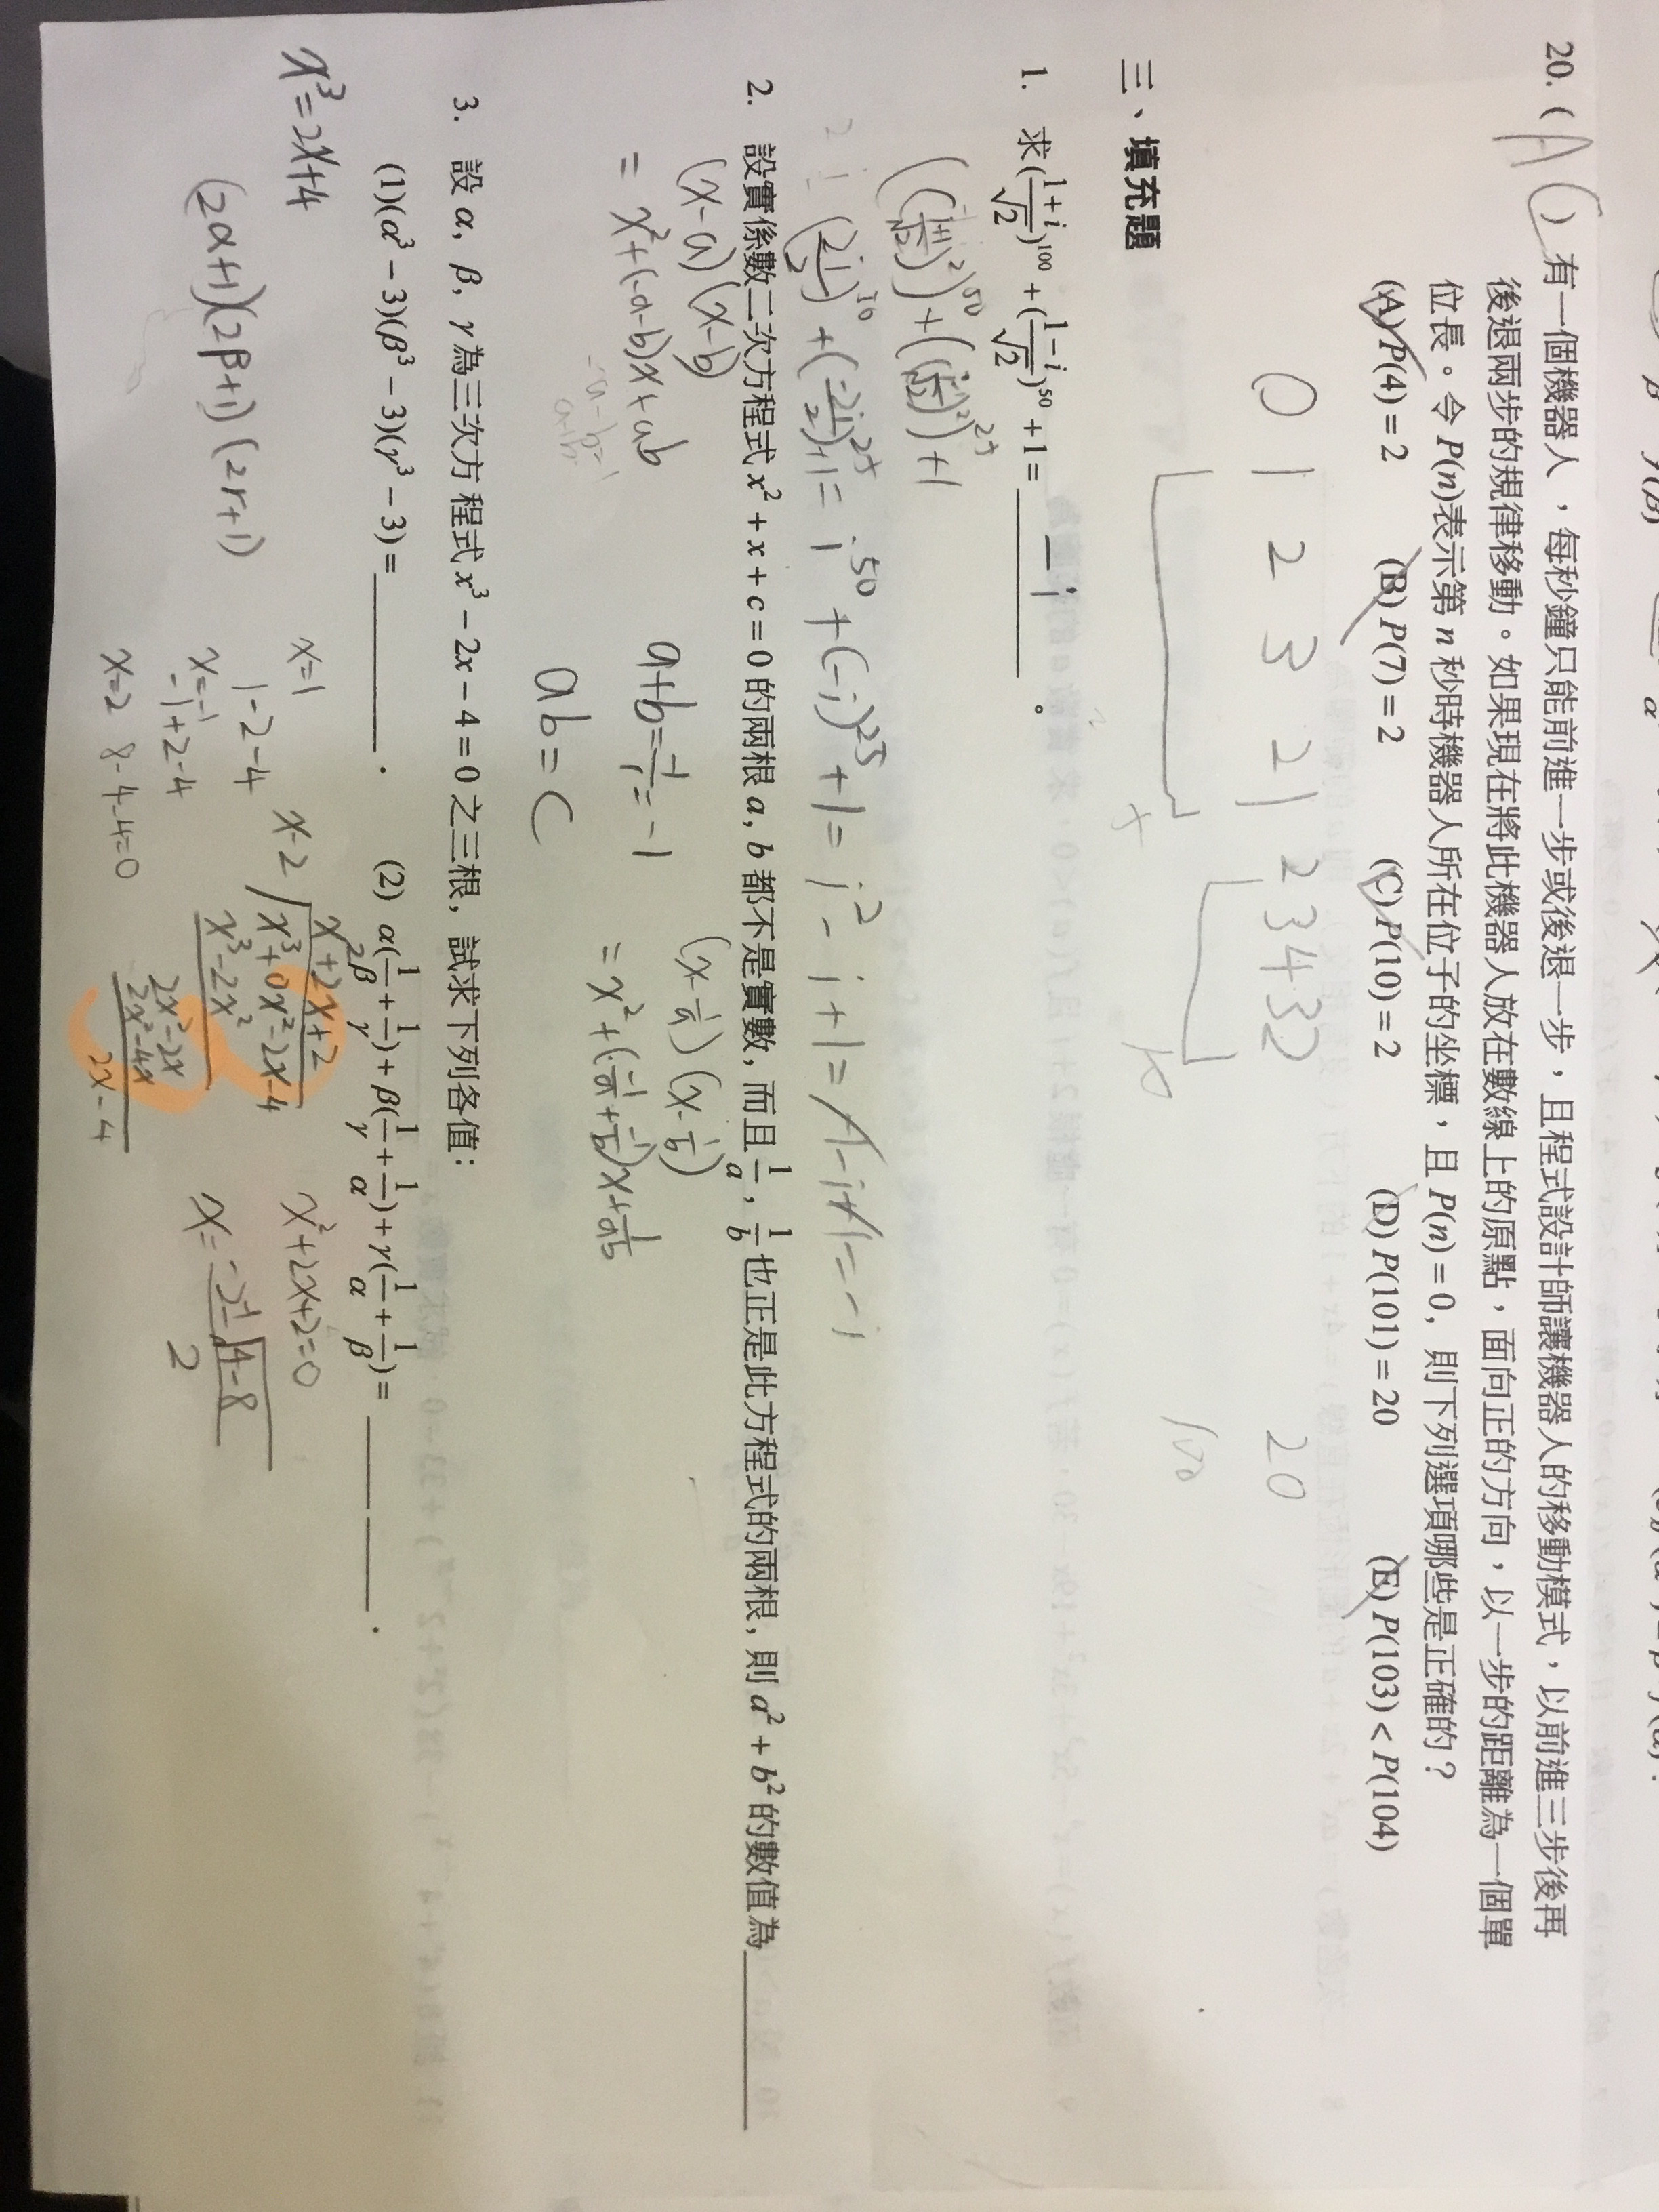 20. ( A C ) 有一個機器人，每秒鐘只能前進一步或後退一步，且程式設計師讓機器人的移動模式，以前進三步後再
後退兩步的規律移動。如果現在將此機器人放在數線上的原點，面向正的方向，以一步的距離為一個單
位長。令 P(n)表示第 n 秒時機器人所在位子的坐標，且 P(n) = 0，則下列選項哪些是正確的？
(A) P(4) = 2 (B) P(7) = 2 (C) P(10) = 2 (D) P(101) = 20 (E) P(103) < P(104)
0 1 2 3 2 1 2 3 4 3 2 20
5 10 100
三、填充題
1. 求 (\frac{1+i}{\sqrt{2}})^{100} + (\frac{1-i}{\sqrt{2}})^{50} + 1 = -i 。
(\frac{2i}{2})^{50} + (\frac{-2i}{2})^{25} + 1 = i^{50} + (-i)^{25} + 1 = i^2 - i + 1 = -1 - i + 1 = -i
2. 設實係數二次方程式 x^2 + x + c = 0 的兩根 a, b 都不是實數，而且 \frac{1}{a}, \frac{1}{b} 也正是此方程式的兩根，則 a^2 + b^2 的數值為
(x-a)(x-b) a+b = \frac{-1}{1} = -1 (x-\frac{1}{a})(x-\frac{1}{b})
= x^2+(-a-b)x+ab = x^2+(\frac{-1}{a}+\frac{-1}{b})x+\frac{1}{ab}
ab = c
3. 設 α, β, γ 為三次方程式 x^3 - 2x - 4 = 0 之三根，試求下列各值：
(1)(α^3 - 3)(β^3 - 3)(γ^3 - 3) = . (2) α(\frac{1}{β} + \frac{1}{γ}) + β(\frac{1}{γ} + \frac{1}{α}) + γ(\frac{1}{α} + \frac{1}{β}) = .
x^3 = 2x+4
(2α+1)(2β+1)(2r+1)
x=1
1-2-4
x=-1
-1+2-4
x=2 8-4-4=0
x^2+2x+2
x-2 x^3+0x^2-2x-4
x^3-2x^2
2x^2-2x
2x^2-4x
2x-4
x^2+2x+2=0
x = \frac{-2±\sqrt{4-8}}{2}